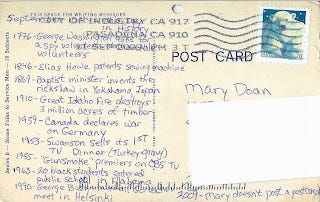 THIS SPACE FOR WRITING MESSAGES
September
in History
CITY OF INDUSTRY CA 917
PASADENA CA 910
1776-George Washington asks for
a spy volunteer, volunteers
1846-Elias Howe patents sewing machine
1869-Baptist minister invents the
rickshaw in Yokohama Japan
1910-Great Idaho Fire destroys
3 million acres of timber
1939-Canada declares war
on Germany
1953-Swanson sells its 1ST
TV Dinner (turkey+gravy)
1955-"Gunsmoke" premiers on CBS TV
1963-20 black students entered
public school in Alabama
1990-George Bush
meet in Helsinki
POST CARD
Mary Doan
2009-Mary doesn't post a postcard
Series 8 - Home Folks to Service Men - 15 Subjects